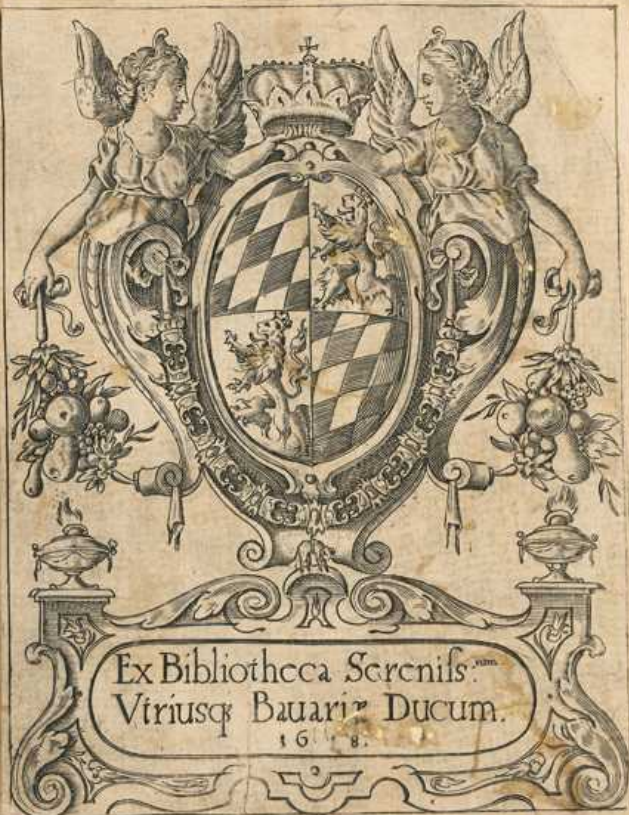 Ex Bibliotheca Sereniſs:mom
Vtriusqꝫ Bauarię Ducum.